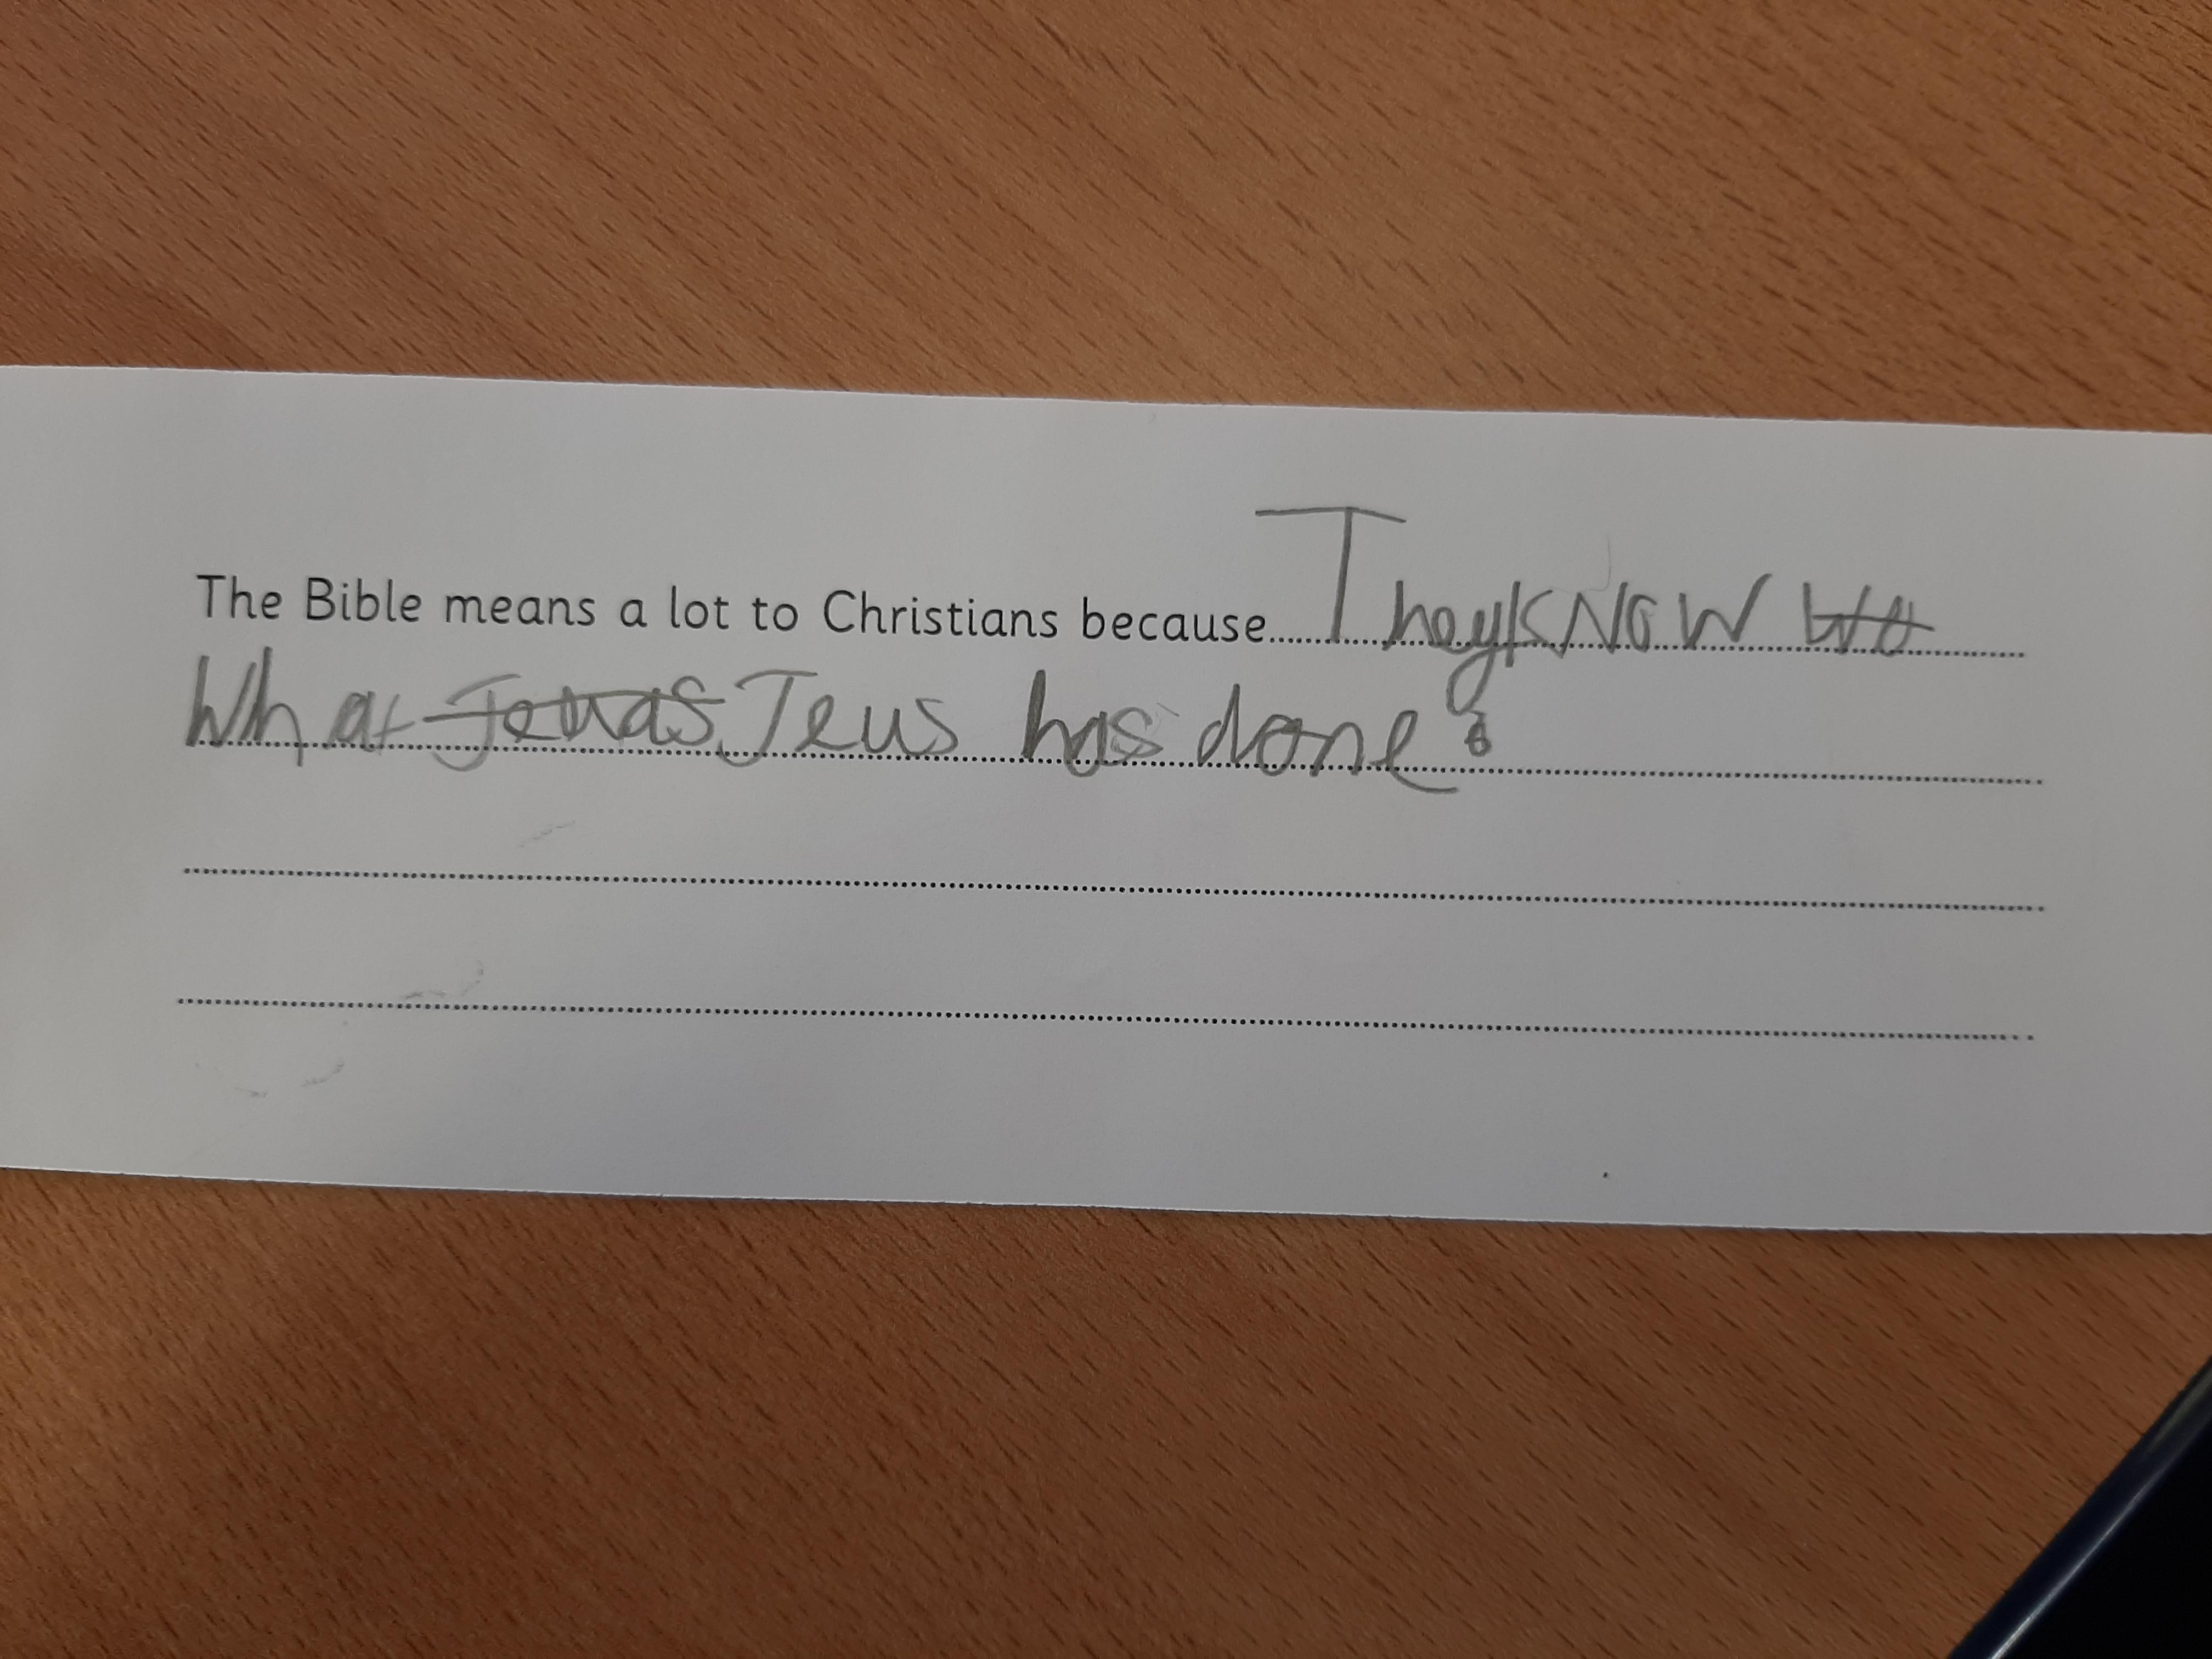 The Bible means a lot to Christians because........They KNow Wo
What Jeuas Jeus has done